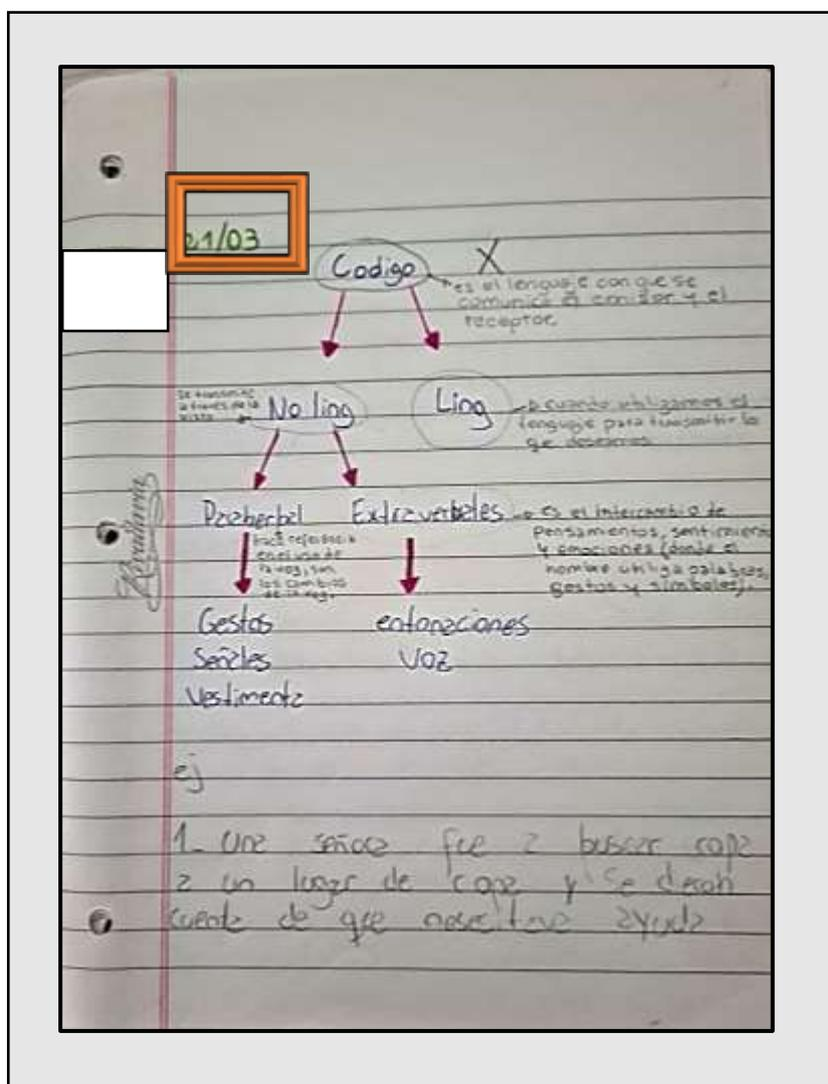 21/03
Codigo X
es el lenguaje con que se
comunica el emisor y el
receptor.
Se transmite
a traves de la
vista
No ling
Ling
cuando utilizamos el
lenguaje para transmitir lo
que deseamos
Rivadavia
Paraberbal
hace referencia
en el uso de
la voz, son
los cambios
de la voz.
Extraverbales
es el intercambio de
Pensamientos, sentimientos
y emociones (donde el
hombre utiliza palabras,
gestos y simbolos).
Gestos
Señales
Vestimenta
entonaciones
Voz
ej
1- Una señora fue a buscar ropa
a un lugar de ropa y se
cuenta de que ayuda